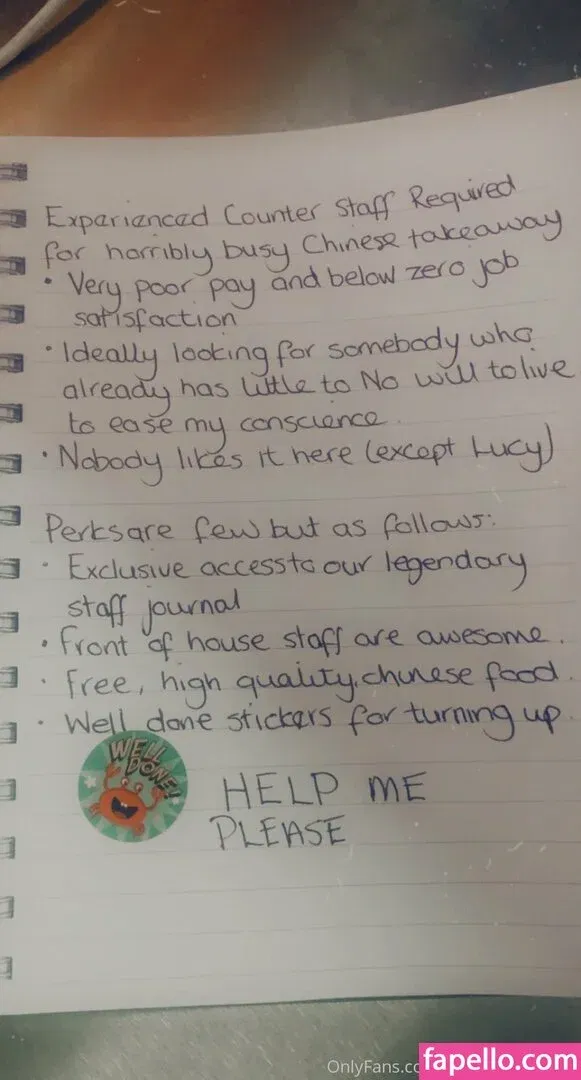 Experienced Counter Staff Required
for horribly busy Chinese takeaway
• Very poor pay and below zero job
satisfaction
• Ideally looking for somebody who
already has little to No will to live
to ease my conscience.
• Nobody likes it here (except Lucy)
Perks are few but as follows:
• Exclusive access to our legendary
staff journal
• Front of house staff are awesome.
• Free, high quality, chinese food.
• Well done stickers for turning up.
WELL
DONE!
HELP ME
PLEASE
OnlyFans.co
fapello.com